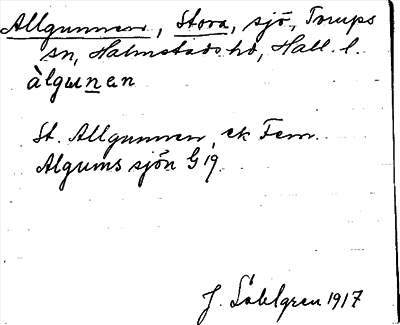 Allgunnen, Stora, sjö, Torups
sn, Halmstads hd, Hall. l.
àlgunen
St. Allgunnen, ek Fem.
Algums sjön G 19
J. Sahlgren 1917